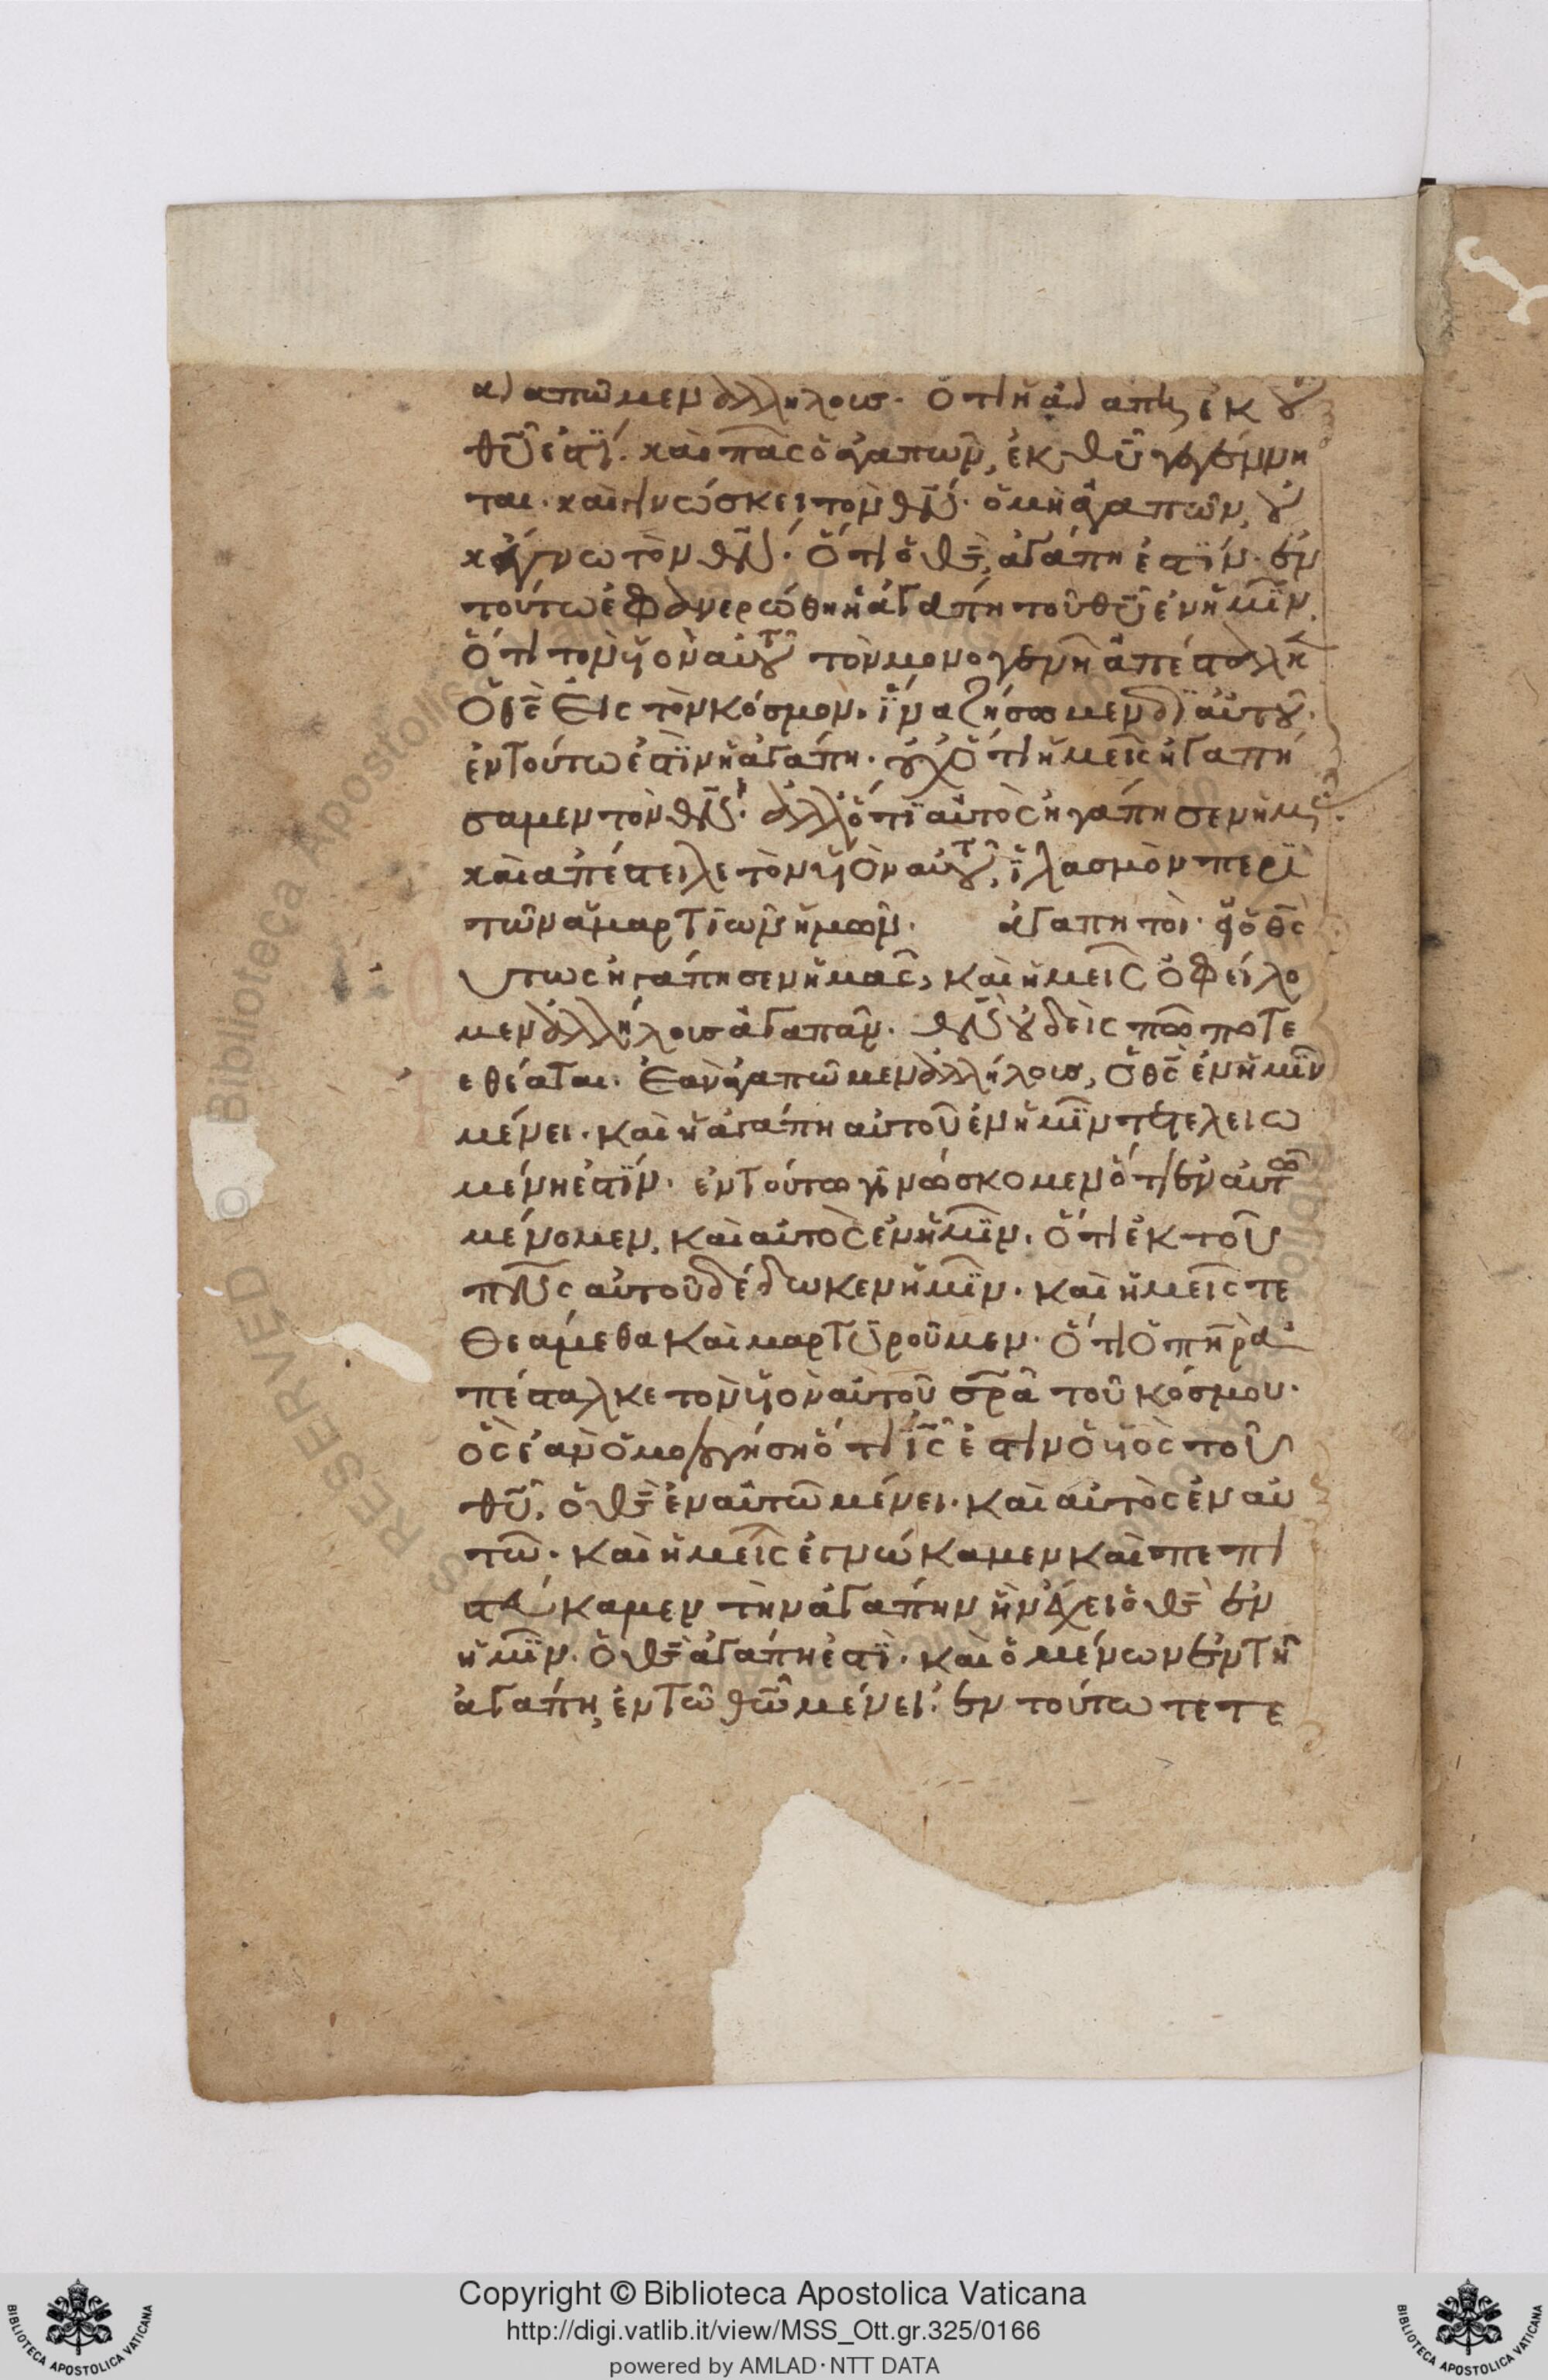 ἀγαπῶμεν ἀλλήλους· ὅτι ἡ ἀγάπη ἐκ τοῦ
θ̅υ̅ ἐστί· καὶ πᾶς ὁ ἀγαπῶν, ἐκ θ̅υ̅ γεγέννη
ται· καὶ γινώσκει τὸν θ̅ν̅· ὁ μὴ ἀγαπῶν, οὐ
κ ἔγνω τὸν θ̅ν̅· ὅτι ὁ θ̅ς̅ ἀγάπη ἐστίν· ἐν
τούτω ἐφανερώθη ἡ ἀγάπη τοῦ θ̅υ̅ ἐν ἡμῖν,
ὅτι τὸν ὑὸν αὐτοῦ τὸν μονογενῆ ἀπέσταλκε
ὁ θ̅ς̅ εἰς τὸν κόσμον· ἵνα ζήσωμεν δι αὐτοῦ·
ἐν τούτω ἐστὶν ἡ ἀγάπη· οὐχ ὅτι ἡμεῖς ἠγαπή
σαμεν τὸν θ̅ν̅· ἀλλ ὅτι αὐτὸς ἠγάπησεν ἡμᾶς·
καὶ ἀπέστειλε τὸν ὑὸν αὐτοῦ, ἱλασμὸν περὶ
τῶν ἁμαρτιῶν ἡμῶν· ἀγαπητοὶ· εἰ ὁ θ̅ς̅
οὕτως ἠγάπησεν ἡμᾶς, καὶ ἡμεῖς ὀφείλο
μεν ἀλλήλους ἀγαπᾶν· θ̅ν̅ οὐδεὶς πώποτε
εθέαται· ἐὰν ἀγαπῶμεν ἀλλήλους, ὁ θ̅ς̅ ἐν ἡμῖν
μένει· καὶ ἡ ἀγάπη αὐτοῦ ἐν ἡμῖν τετελειω
μένη ἐστίν· ἐν τούτω γινώσκομεν ὅτι ἐν αὐτῶ
μένομεν, καὶ αὐτὸς ἐν ἡμῖν· ὅτι ἐκ τοῦ
π̅ν̅ς̅ αὐτοῦ δέδωκεν ἡμῖν· καὶ ἡμεῖς τε
θεάμεθα καὶ μαρτυροῦμεν· ὅτι ὁ π̅η̅ρ̅ ἀ
πέσταλκε τὸν ὑὸν αὐτοῦ σ̅ρ̅α̅ τοῦ κόσμου·
ὃς ἐὰν ὁμολογήση ὅτι ι̅ς̅ ἐστιν ὁ ὑὸς τοῦ
θ̅υ̅, ὁ θ̅ς̅ ἐν αὐτῶ μένει· καὶ αὐτὸς ἐν αὐ
τῶ· καὶ ἡμεῖς ἐγνώκαμεν καὶ πεπι
στεύκαμεν τὴν ἀγάπην ἣν ἔχει ὁ θ̅ς̅ ἐν
ἡμῖν· ὁ θ̅ς̅ ἀγάπη ἐστὶ· καὶ ὁ μένων ἐν τῆ
ἀγάπη, ἐν τῶ θ̅ω̅ μένει· ἐν τούτω τετε
Copyright © Biblioteca Apostolica Vaticana
http://digi.vatlib.it/view/MSS_Ott.gr.325/0166
powered by AMLAD·NTT DATA